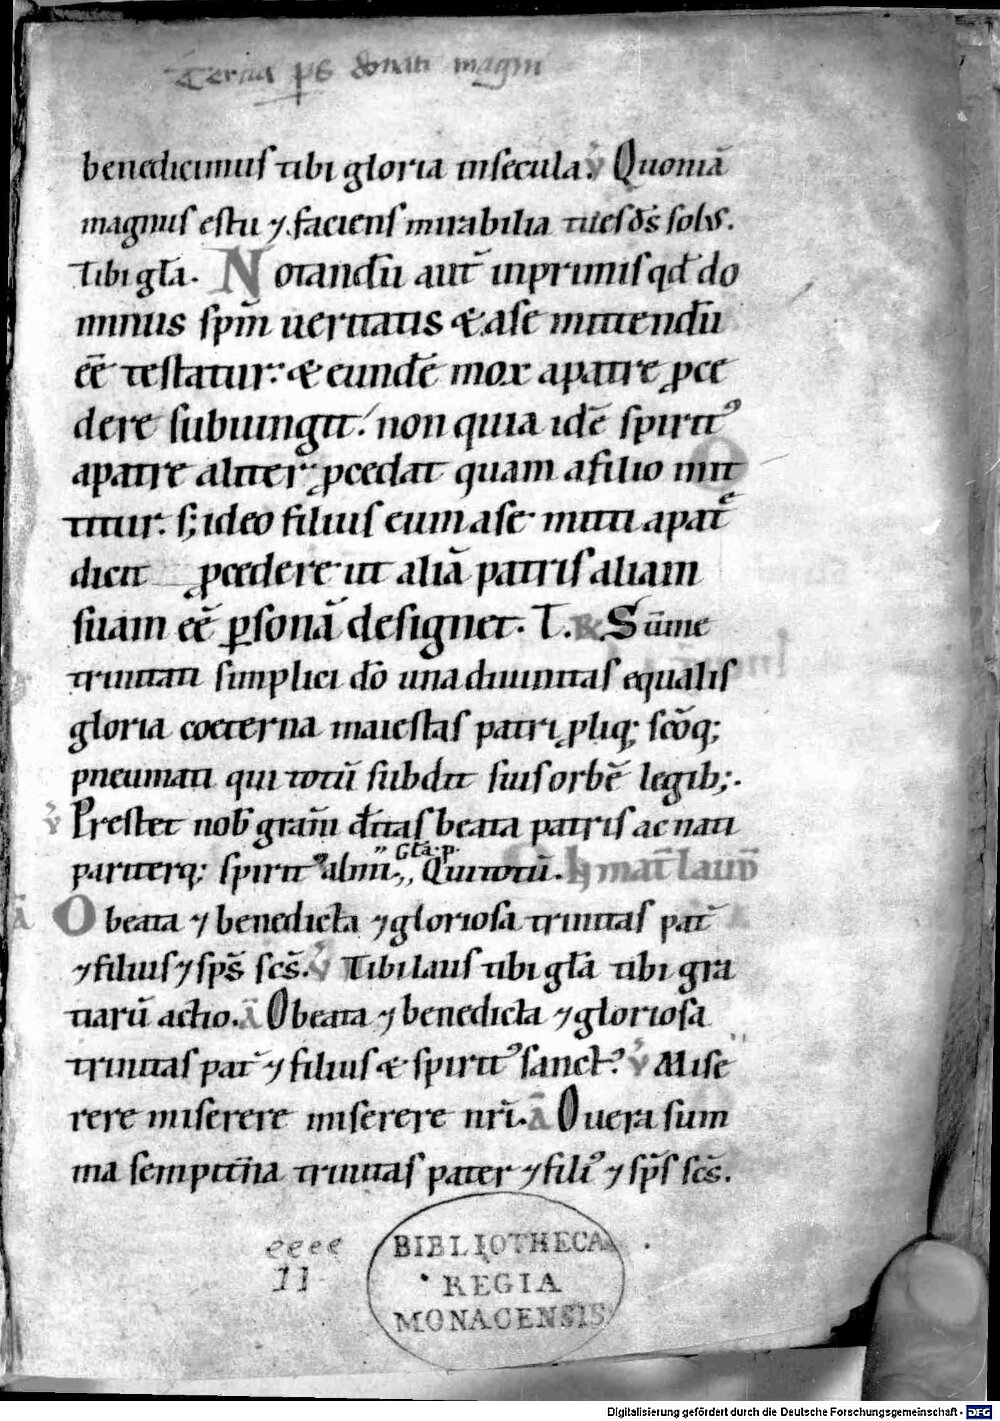 Tercia ps donati magni
benedicimus tibi gloria insecula. v̓ Quoniā
magnus estu ⁊ faciens mirabilia tu es ds̄ solus.
Tibi gl̄a. Notandū aut̄ inprimis qd̄ do
minus spm̄ ueritatis & ase mittendū
eē testatur: & eundē mox apatre ꝓce
dere subiungit. non quia idē spiritꝰ
apatre aliter ꝓcedat quam afilio mit
titur. s; ideo filius eum ase mitti apatͤ
dicit ꝓcedere ut aliā patris aliam
suam eē ꝑsonā designet. T. R Sūme
trinitati simplici dō una diuinitas equalis
gloria coeterna maiestas patri ꝓliq; scōq;
pneumati qui totū subdit suis orbē legib;.
v̓ Prestet nob̄ gram̄ ditas beata patris ac nati
pariterq; spiritꝰ almi. Gl̄a. p. Qui totū. Ih mat̄ laud̄
ā O beata ⁊ benedicta ⁊ gloriosa trinitas pat̄
⁊ filius ⁊ sps̄ scs̄. v̓ Tibi laus tibi gl̄a tibi gra
tiarū actio. ā O beata ⁊ benedicta ⁊ gloriosa
trinitas pat̄ ⁊ filius & spiritꝰ sanctꝰ. v̓ Mise
rere miserere miserere nri̅. ā O uera sum
ma sempitn̄a trinitas pater ⁊ filiꝰ ⁊ sps̄ scs̄.
eeee
11
BIBLIOTHECA
REGIA
MONACENSIS
Digitalisierung gefördert durch die Deutsche Forschungsgemeinschaft - DFG